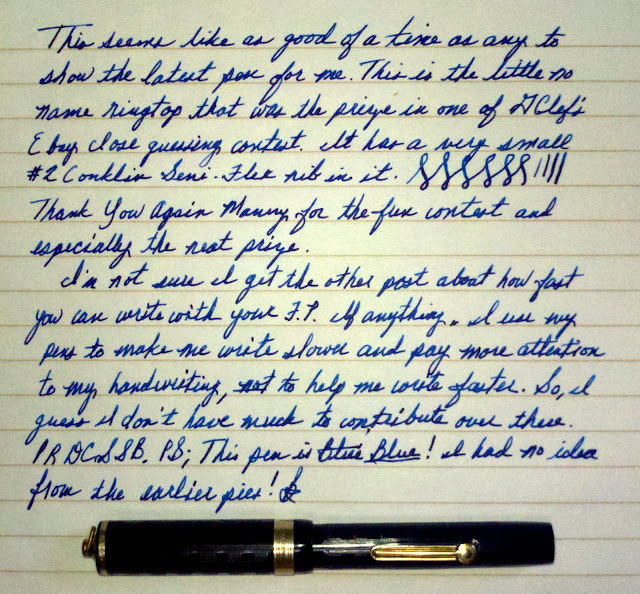 This seems like as good of a time as any to
show the latest pen for me. This is the little no
name ringtop that was the prize in one of GClef's
Ebay close guessing contest. It has a very small
#2 Conklin Semi-Flex nib in it.
Thank You Again Manny, for the fun contest and
especially the neat prize.
I'm not sure I get the other post about how fast
you can write with your F.P. If anything. I use my
pens to make me write slower and pay more attention
to my handwriting, not to help me write faster. So, I
guess I don't have much to contribute over there.
PR DCSSB. PS; This pen is Blue! I had no idea
from the earlier pics!